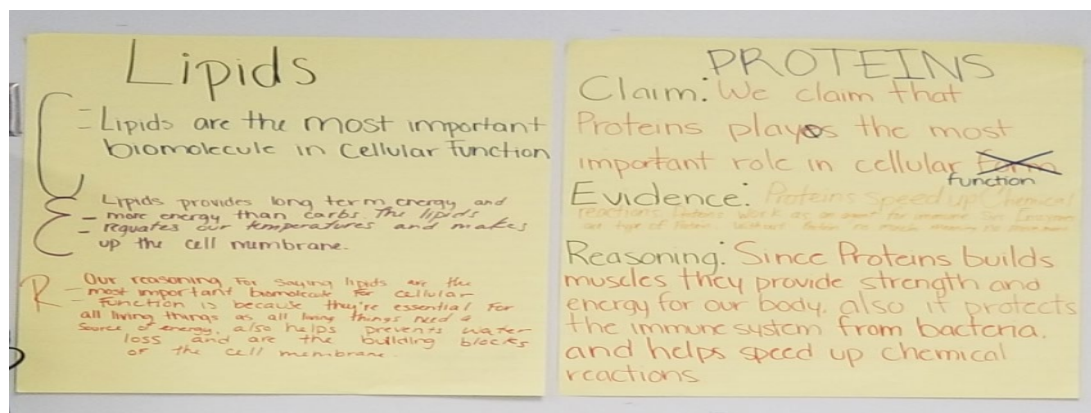 Lipids
C = Lipids are the most important
biomolecule in Cellular Function
E = Lipids provides long term energy and
more energy than carbs. The lipids
reguates our temperatures and makes
up the cell membrane.
R = Our reasoning For saying lipids are the
most important biomolecule for cellular
function is because they're essential for
all living things as all living things need a
source of energy, also helps prevents water
loss and are the building blocks
of the cell membrane.
PROTEINS
Claim: We claim that
Proteins plays the most
important role in cellular
function
Evidence: Proteins speed up Chemical
reactions. Proteins work as an
Reasoning: Since Proteins builds
muscles they provide strength and
energy for our body. also it protects
the immune system from bacteria,
and helps speed up chemical
reactions